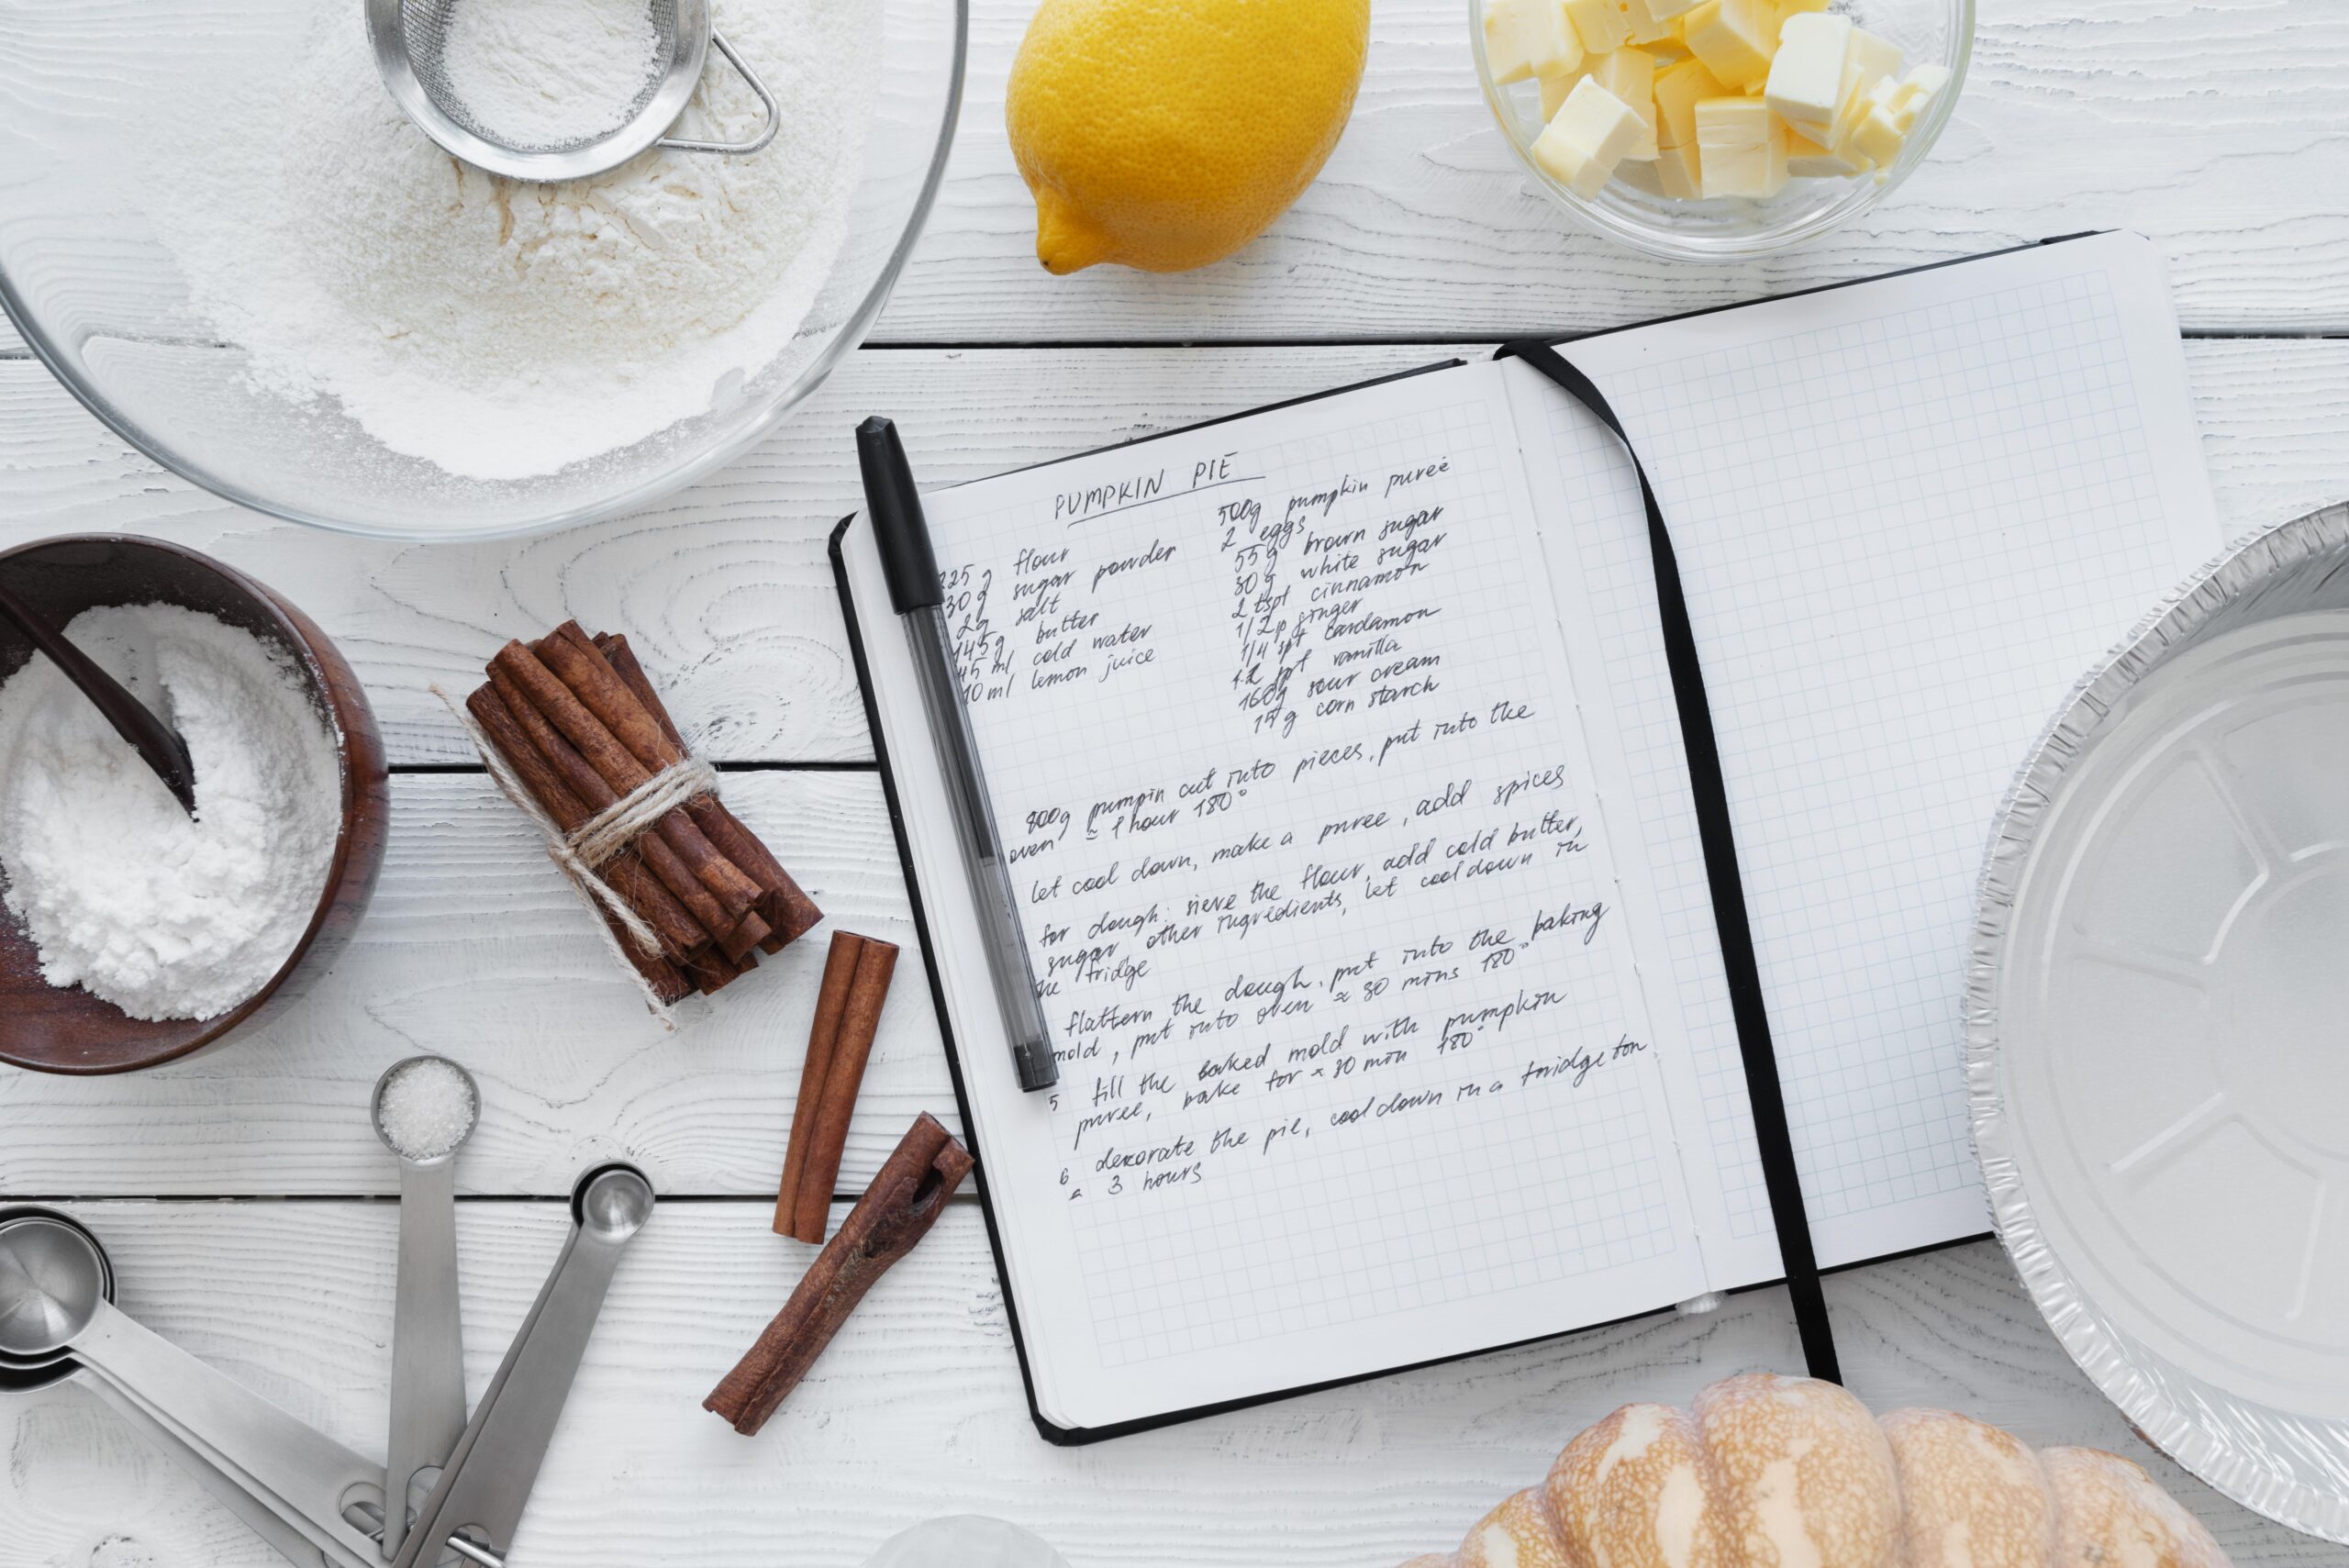 PUMPKIN PIE
225 g flour
30 g sugar powder
2g salt
145g butter
45 ml cold water
10 ml lemon juice
500g pumpkin pureé
2 eggs
55g brown sugar
30g white sugar
2 tspt cinnamon
1/2p ginger
1/4 spt cardamon
spt vanilla
160g sour cream
15 g corn starch
800g pumpin cut into pieces, put into the
oven ≈ 1 hour 180°
let cool down, make a puree, add spices
for dough: sieve the flour, add cold butter,
sugar other ingredients, let cool down in
the fridge
flattern the dough, put into the baking
mold, put into oven ≈ 30 mins 180°
5 fill the baked mold with pumpkin
puree, bake for ≈ 30 min 180°
6 decorate the pie, cool down in a fridge for
≈ 3 hours